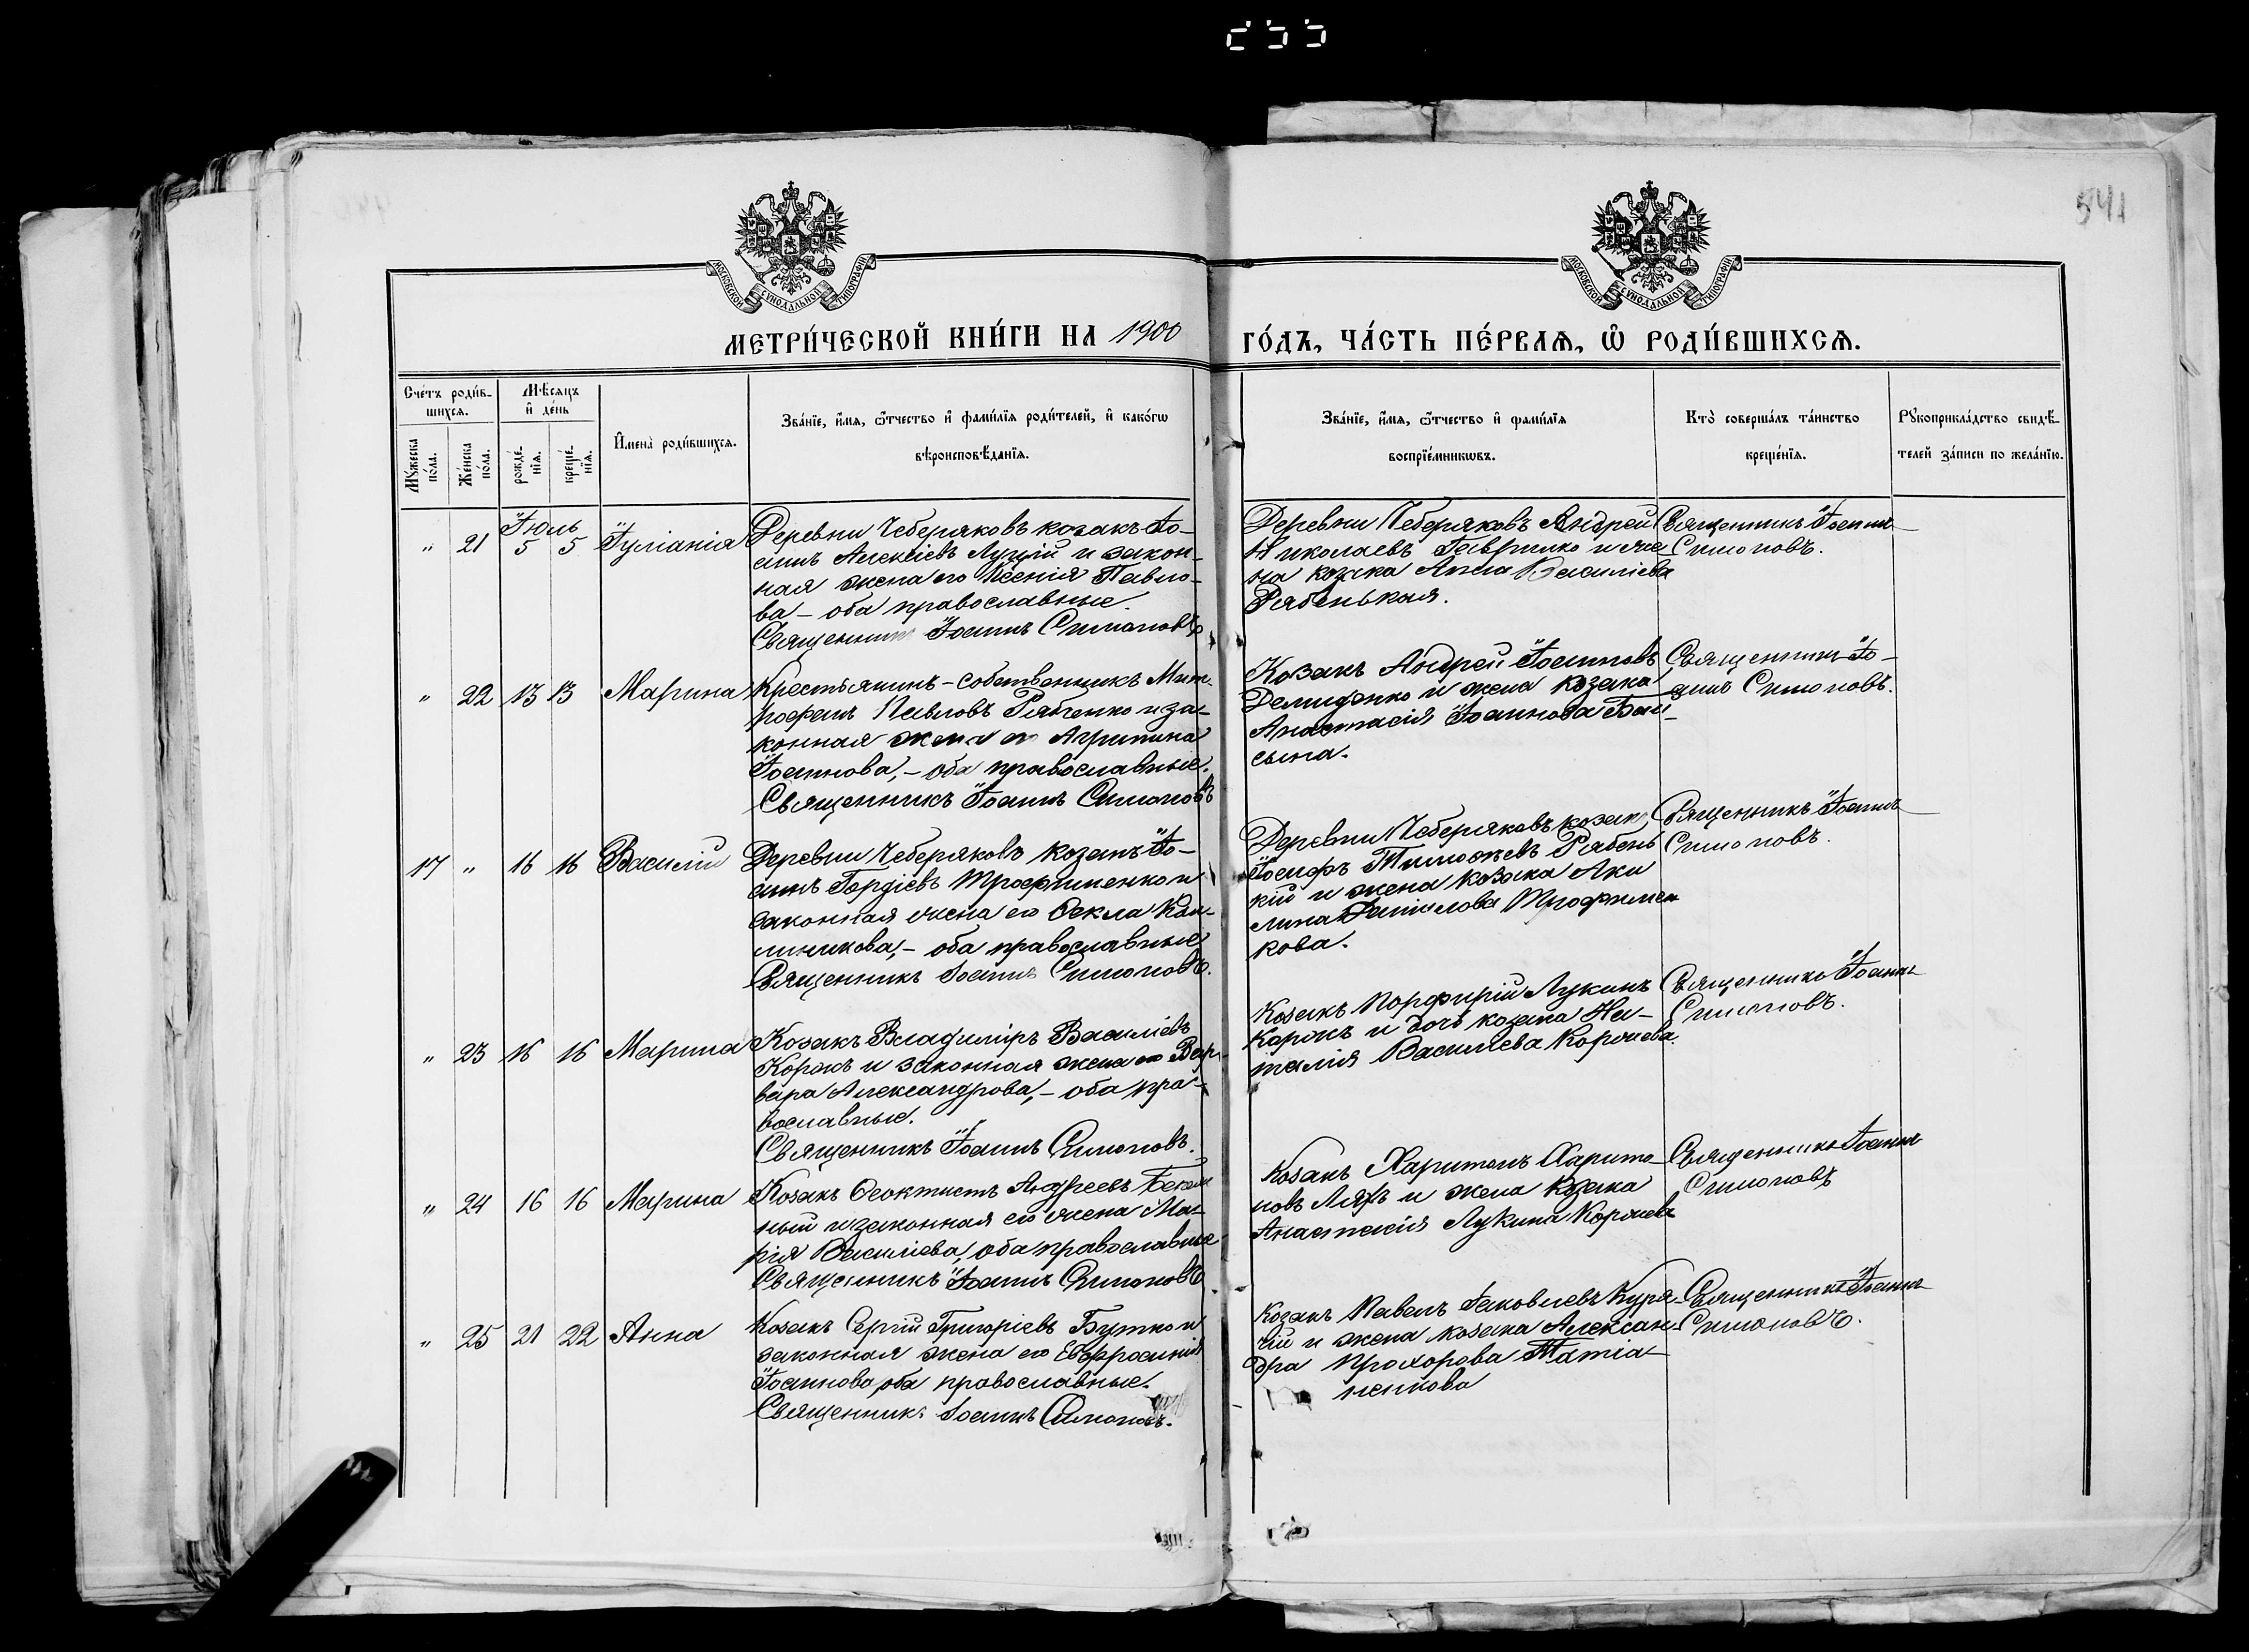 541
МОСКОВСКОЙ СѴНОДАЛЬНОЙ ТИПОГРАФІИ
МОСКОВСКОЙ СѴНОДАЛЬНОЙ ТИПОГРАФІИ
МЕТРИ́ЧЕСКОЙ КНИ́ГИ НА 1900 ГО́ДЪ, ЧА́СТЬ ПЕ́РВАѦ, Ѡ҆ РОДИ́ВШИХСѦ.
Сче́тъ роди́в-
шихсѧ.
Мꙋ́жеска
по́ла.
Же́нска
по́ла.
Мѣ́сѧцъ
и҆ де́нь
рожде́-
нїѧ.
креще́-
нїѧ.
И҆мена̀ роди́вшихсѧ.
Зва́нїе, и҆́мѧ, ѻ҆́тчество и҆ фами́лїѧ роди́телей, и҆ како́гѡ
вѣроисповѣ́данїѧ.
Зва́нїе, и҆́мѧ, ѻ҆́тчество и҆ фами́лїѧ
воспрїе́мникѡвъ.
Кто̀ соверша́лъ та́инство
креще́нїѧ.
Рꙋкоприкла́дство свидѣ́-
телей за́писи по жела́нїю.
Іюль
" 21 5 5 Іуліанія
Деревни Чеберяковъ козакъ Іо-
аннъ Алексіевъ Луцій и закон-
ная жена его Ксенія Павло-
ва - оба православные.
Священникъ Іоаннъ Симоновъ
Деревни Чеберяковъ Андрей
Николаевъ Гавришко и же-
на козака Анна Василіева
Рябенькая.
Священникъ Іоаннъ
Симоновъ.
" 22 13 13 Марина
Крестьянинъ-собственникъ Мит-
рофанъ Павловъ Рябченко и за-
конная жена его Агрипина
Іоаннова, - оба православные.
Священникъ Іоаннъ Симоновъ
Козакъ Андрей Іоанновъ
Демиденко и жена козака
Анастасія Іоаннова Бай-
сына.
Священникъ Іо-
аннъ Симоновъ.
17 " 16 16 Василій
Деревни Чеберяковъ козакъ Іо-
аннъ Гордіевъ Трофименко и
законная жена его Ѳекла Кал-
линикова, - оба православные
Священникъ Іоаннъ Симоновъ.
Деревни Чеберяковъ козак
Іосифъ Тимоѳеевъ Рябень
кій и жена козака Аки
лина Даніилова Трофимен
кова.
Священникъ Іоаннъ
Симоновъ.
" 23 16 16 Марина
Козакъ Владиміръ Василіевъ
Коржъ и законная жена его Вар-
вара Александрова, - оба пра-
вославные.
Священникъ Іоаннъ Симоновъ.
Козакъ Порфирій Лукинъ
Коржъ и дочь козака На-
талія Василіева Коржева.
Священникъ Іоаннъ
Симоновъ.
" 24 16 16 Марина
Козакъ Ѳеоктистъ Андреевъ
ный и законная его жена Ма-
рія Василіева, оба православные
Священникъ Іоаннъ Симоновъ
Козакъ Харитонъ Харито-
новъ Ляхъ и жена козака
Анастасія Лукина Коржева
Священникъ Іоаннъ
Симоновъ
" 25 21 22 Анна
Козакъ Сергій Григоріевъ Бутко и
законная жена его Евфросинія
Іоаннова, оба православные.
Священникъ Іоаннъ Симоновъ.
Козакъ Павелъ Іаковлевъ Куря-
чій и жена козака Алексан-
дра Прохорова Татіа-
ненкова
Священникъ Іоаннъ
Симоновъ.